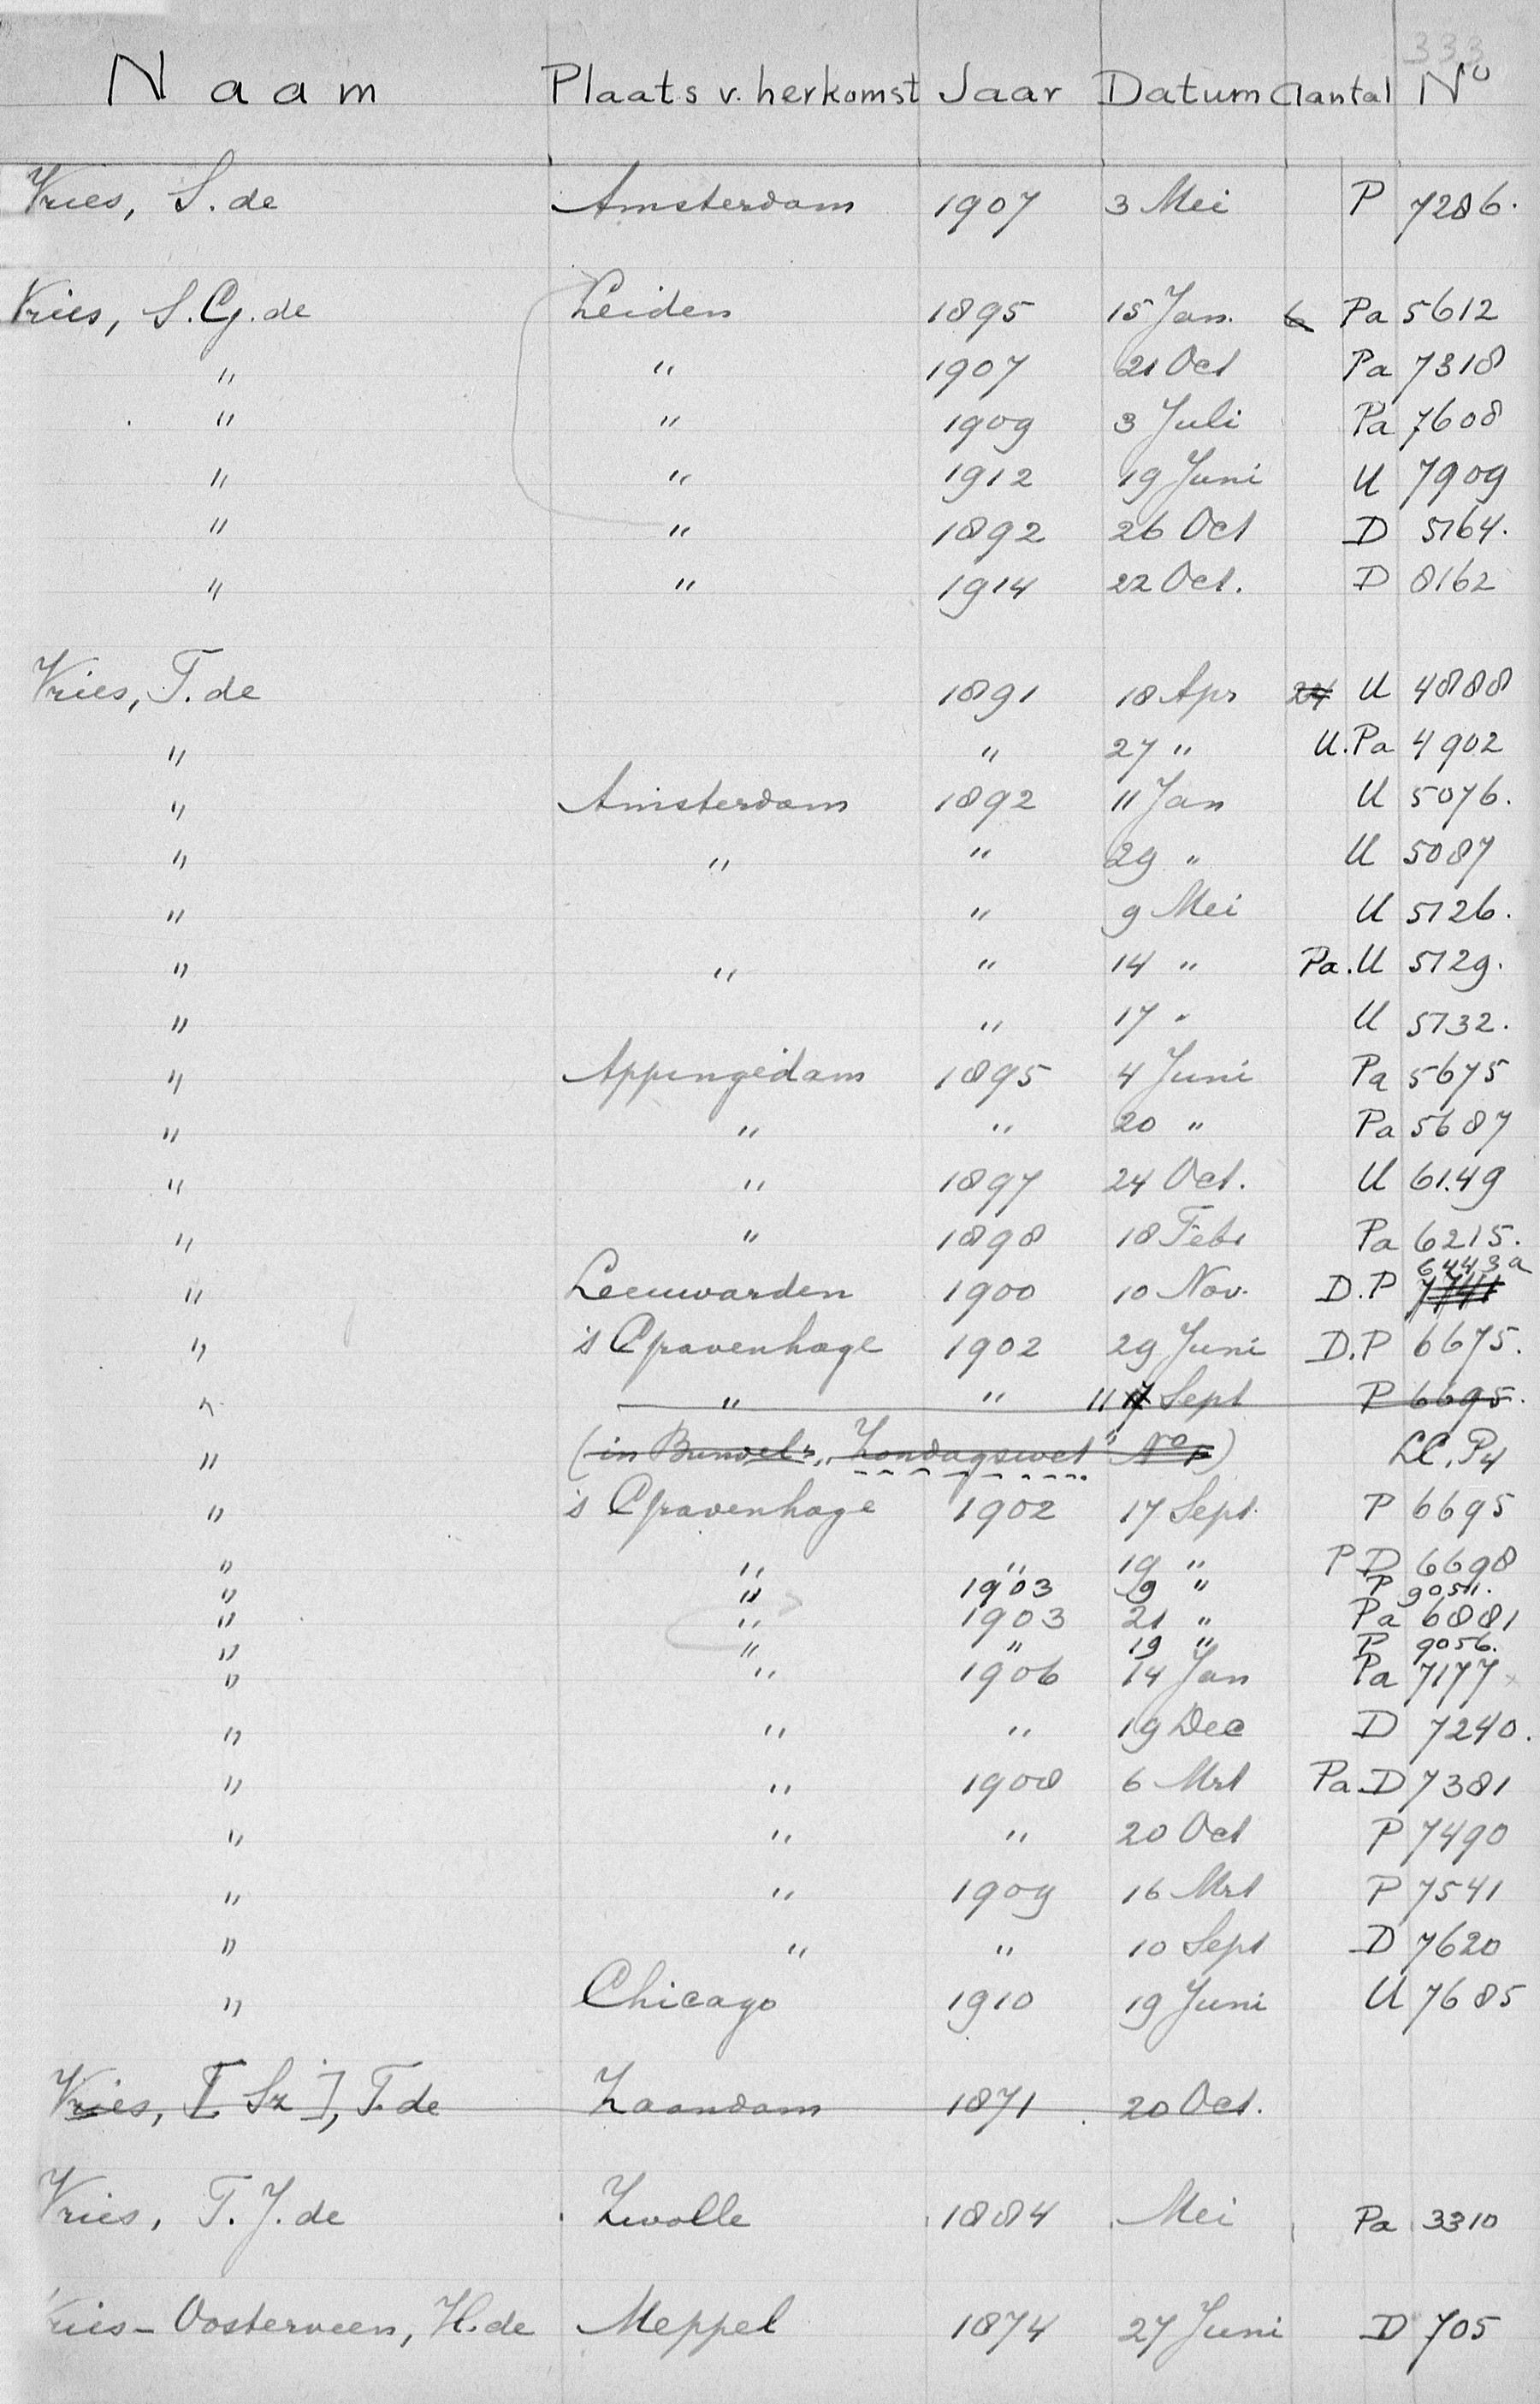 333
Naam Plaats v. herkomst Jaar Datum Aantal No
Vries, S. de Amsterdam 1907 3 Mei P 7286.
Vries, S. G. de Leiden 1895 15 Jan. 6 Pa 5612
" " 1907 21 Oct Pa 7318
" " 1909 3 Juli Pa 7608
" " 1912 19 Juni U 7909
" " 1892 26 Oct D 5164.
" " 1914 22 Oct. D 8162
Vries, T. de 1891 18 Apr 24 U 4888
" " 27 " U. Pa 4902
" Amsterdam 1892 11 Jan U 5076.
" " " 29 " U 5087
" " 9 Mei U 5126.
" " " 14 " Pa. U 5129.
" " 17 " U 5132.
" Appingedam 1895 4 Juni Pa 5675
" " " 20 " Pa 5687
" " 1897 24 Oct. U 6149
" " 1898 18 Febr Pa 6215.
6443a
" Leeuwarden 1900 10 Nov. D. P 7741
" 's Gravenhage 1902 29 Juni D. P 6675.
" " " 11 17 Sept P 6695.
" (in "Zondagswet" No 1) LC. P4
" 's Gravenhage 1902 17 Sept. P 6695
" " " 19 " P D 6698
" " 1903 19 " P 9051.
" " 1903 21 " Pa 6881
" " " 19 " P 9056.
" " 1906 14 Jan Pa 7177 x
" " " 19 Dec D 7240.
" " 1908 6 Mrt Pa. D 7381
" " " 20 Oct P 7490
" " 1909 16 Mrt P 7541
" " " 10 Sept D 7620
" Chicago 1910 19 Juni U 7685
Vries, [Sz], T. de Zaandam 1871 20 Oct.
Vries, T. J. de Zwolle 1884 Mei Pa 3310
Vries-Oosterveen, H. de Meppel 1874 27 Juni D 705